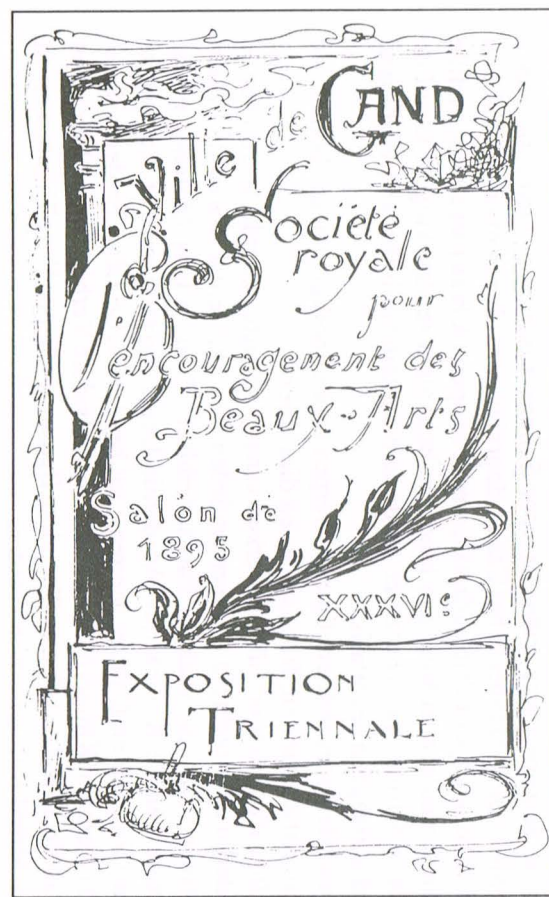 Ville de GAND
Société
royale
pour
l'encouragement des
Beaux-Arts
Salon de
1895
XXXVIe
EXPOSITION
TRIENNALE